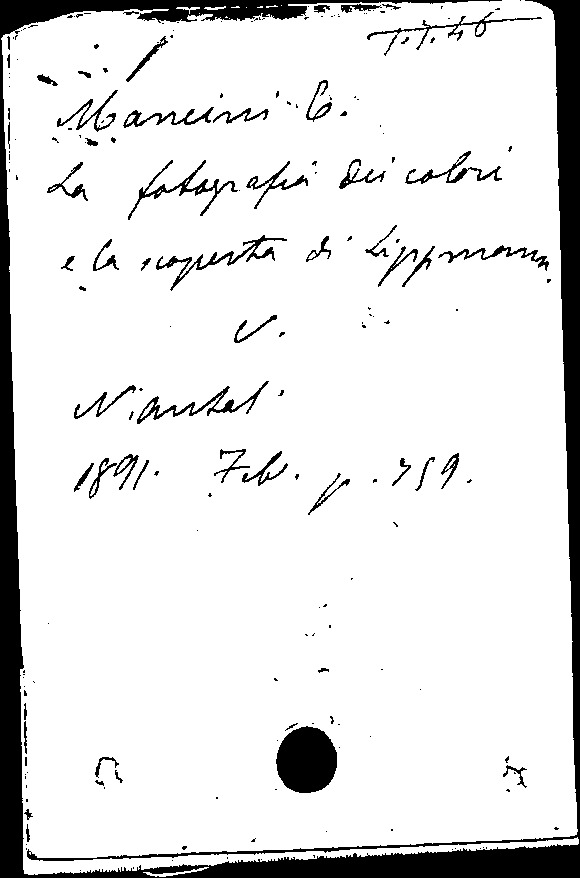 T.T.46
Mancini C.
La fotografia dei colori
e la scoperta di Lippmann.
V.
N. antol.
1891. Feb. p. 759.